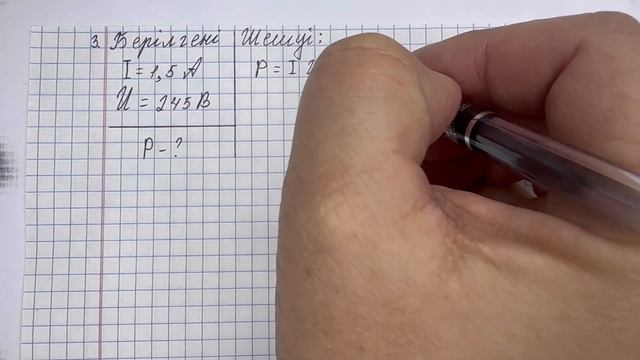 3. Берілгені Шешуі:
I = 1,5 А P = I
U = 245 В
P - ?